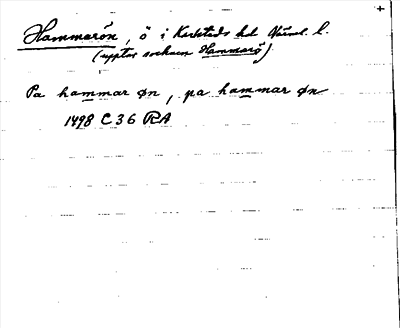 Hammarön, ö i Karlstads hd Värml. l.
(upptar socknen Hammarö)
Pa hammar øn, pa hammar øn
1498 C 36 RA